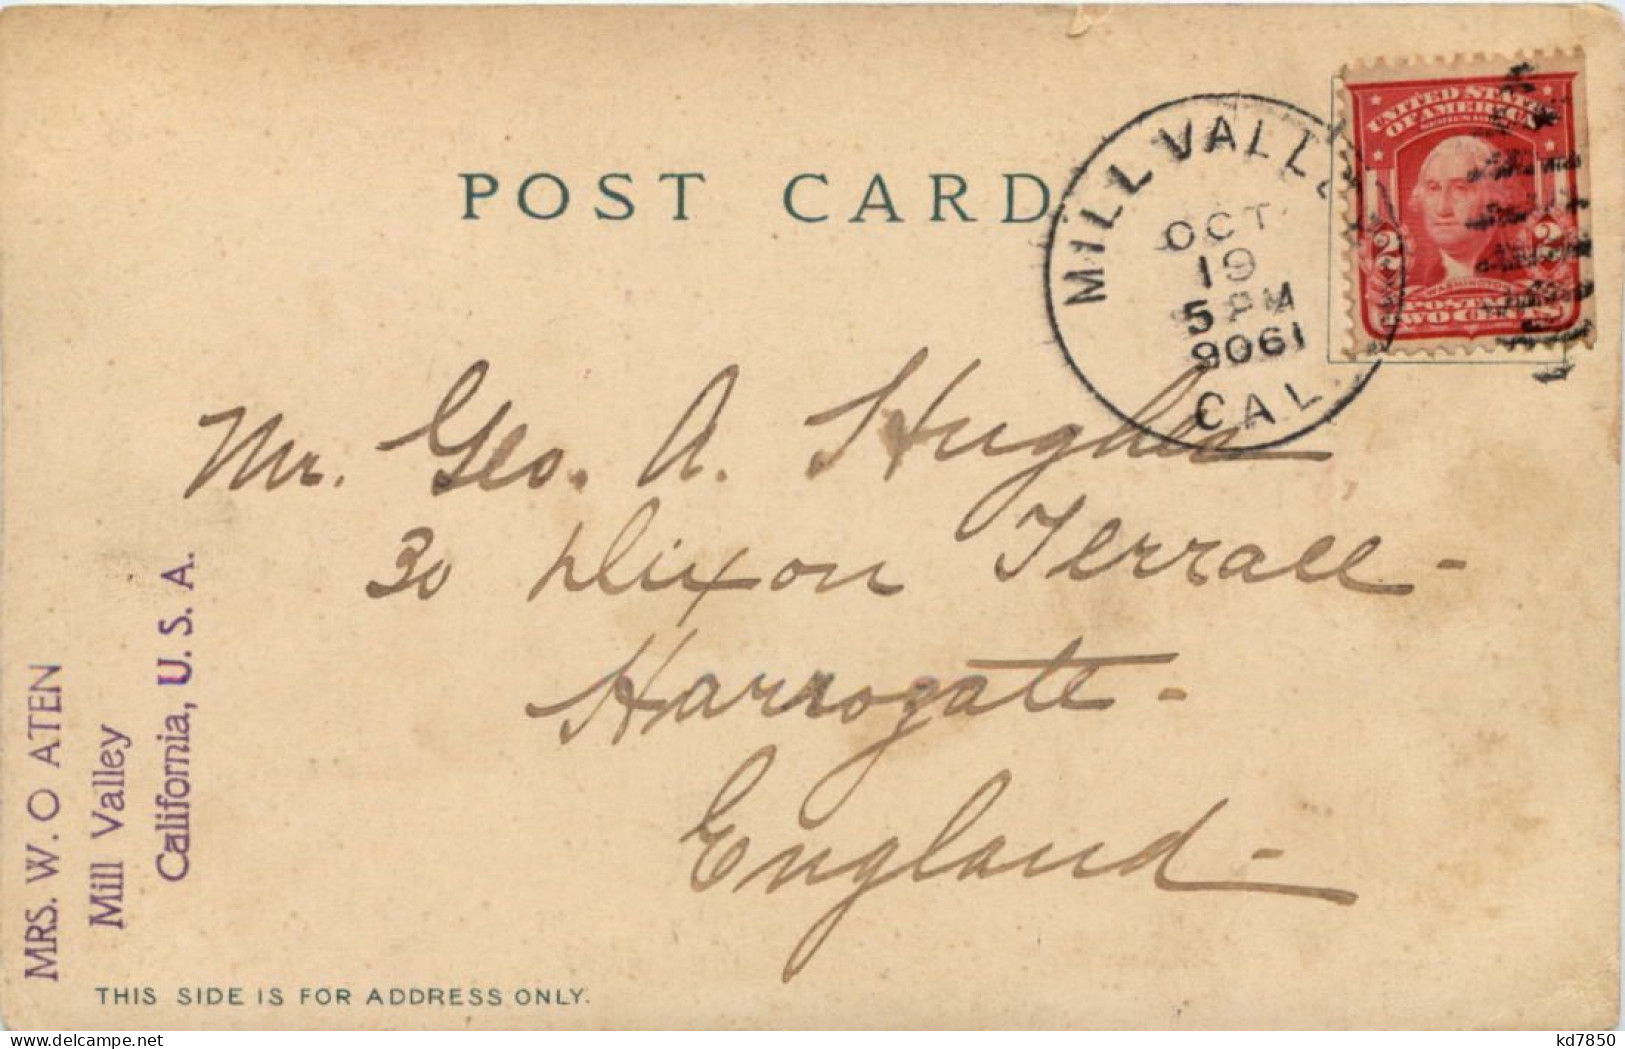 POST CARD
MILL VALLEY
OCT
19
5 PM
9061
CAL
UNITED STATES
OF AMERICA
2 2
WASHINGTON
POSTAGE
TWO CENTS
Mr. Geo. A. Hughes
30 Dixon Terrace -
Harrogate -
England -
MRS. W. O ATEN
Mill Valley
California, U. S. A.
THIS SIDE IS FOR ADDRESS ONLY.
www.delcampe.net
kd7850